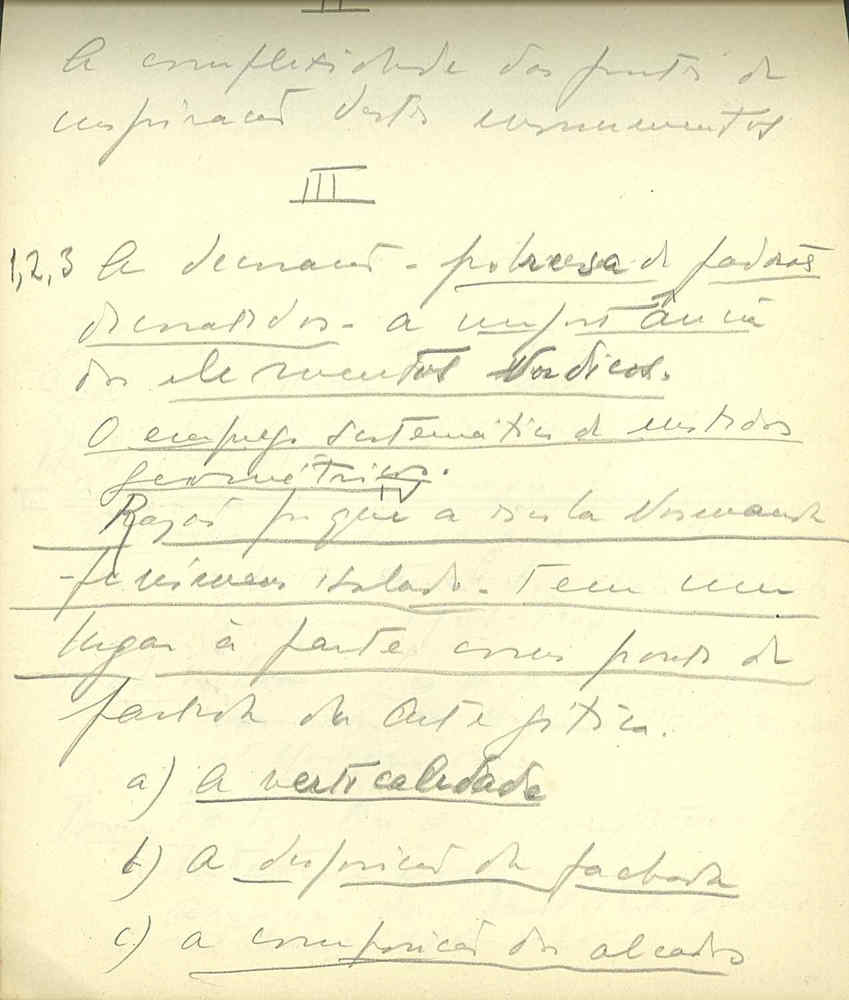 II
A complexidade das fontes de
inspiração destes monumentos
III
1,2,3 A decoração - pobresa de padrões
decorativos - a importância
dos elementos Nordicos.
O emprego sistemático de motivos
geométricos.
IV
Razão porque a escola Normanda
- fenómeno isolado. Tem um
lugar à parte como ponto de
partida da Arte gótica.
a) A verticalidade
b) A disposição da fachada
c) a composição dos alçados